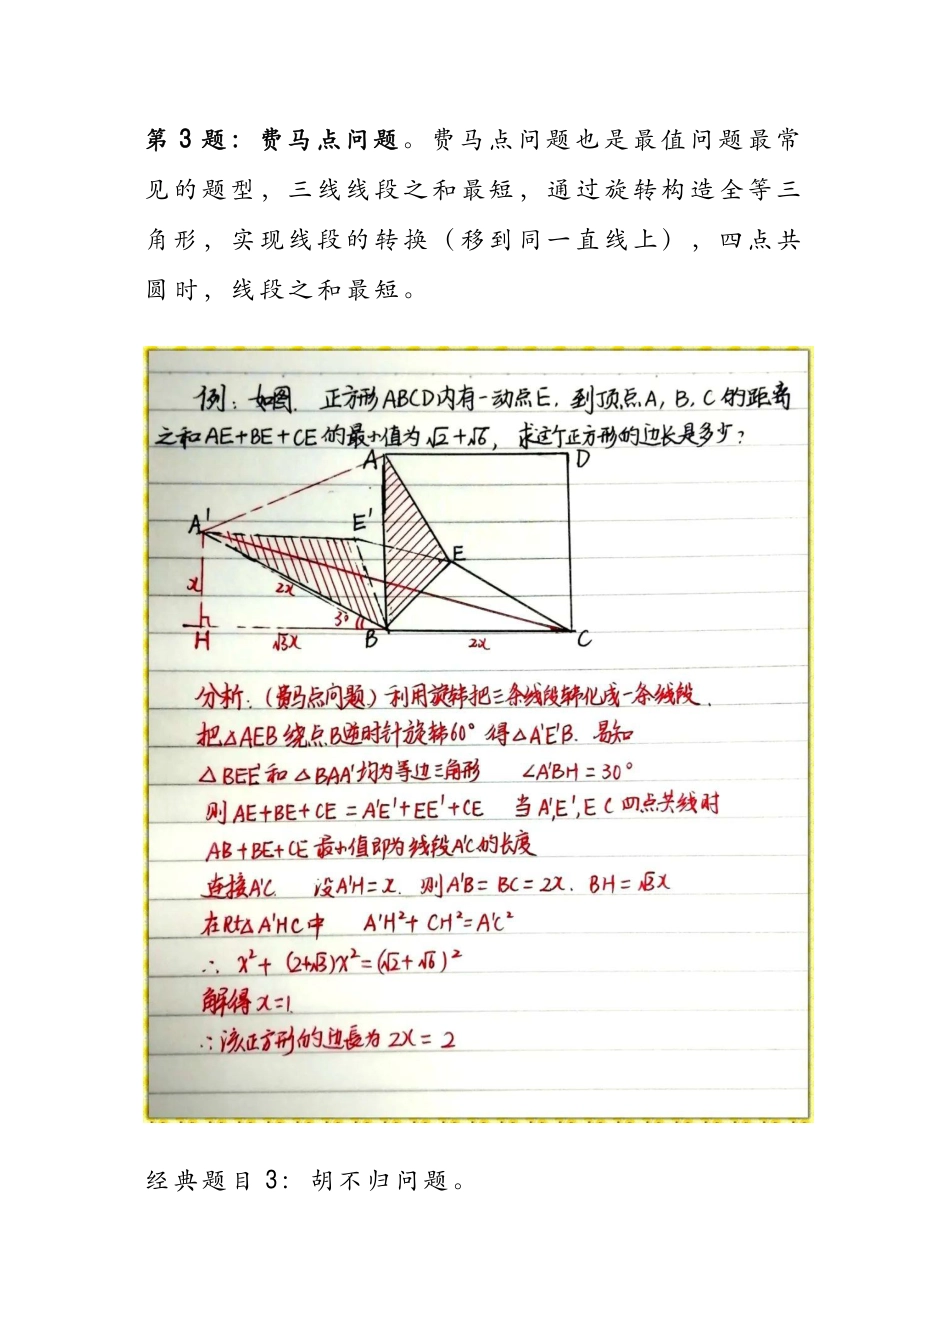 第 3 题：费马点问题。费马点问题也是最值问题最常
见的题型，三线线段之和最短，通过旋转构造全等三
角形，实现线段的转换（移到同一直线上），四点共
圆时，线段之和最短。
例：如图．正方形ABCD内有一动点E．到顶点A，B．C的距离
之和AE+BE+CE的最小值为√2+√6，求这个正方形的边长是多少？
A D
A' E'
E
x 2x
30
H √3x B 2x C
分析：（费马点问题）利用旋转把三条线段转化成一条线段．
把△AEB绕点B逆时针旋转60°得△A'E'B．易知
△BEE'和△BAA'均为等边三角形 ∠A'BH=30°
则AE+BE+CE=A'E'+EE'+CE 当A',E',E C四点共线时
AB+BE+CE最小值即为线段A'C的长度
连接A'C 设A'H=x．则A'B=BC=2x．BH=√3x
在Rt△A'HC中 A'H²+CH²=A'C²
∴ x²+(2+√3)x²=(√2+√6)²
解得x=1．
∴该正方形的边長为2x=2
经典题目 3：胡不归问题。